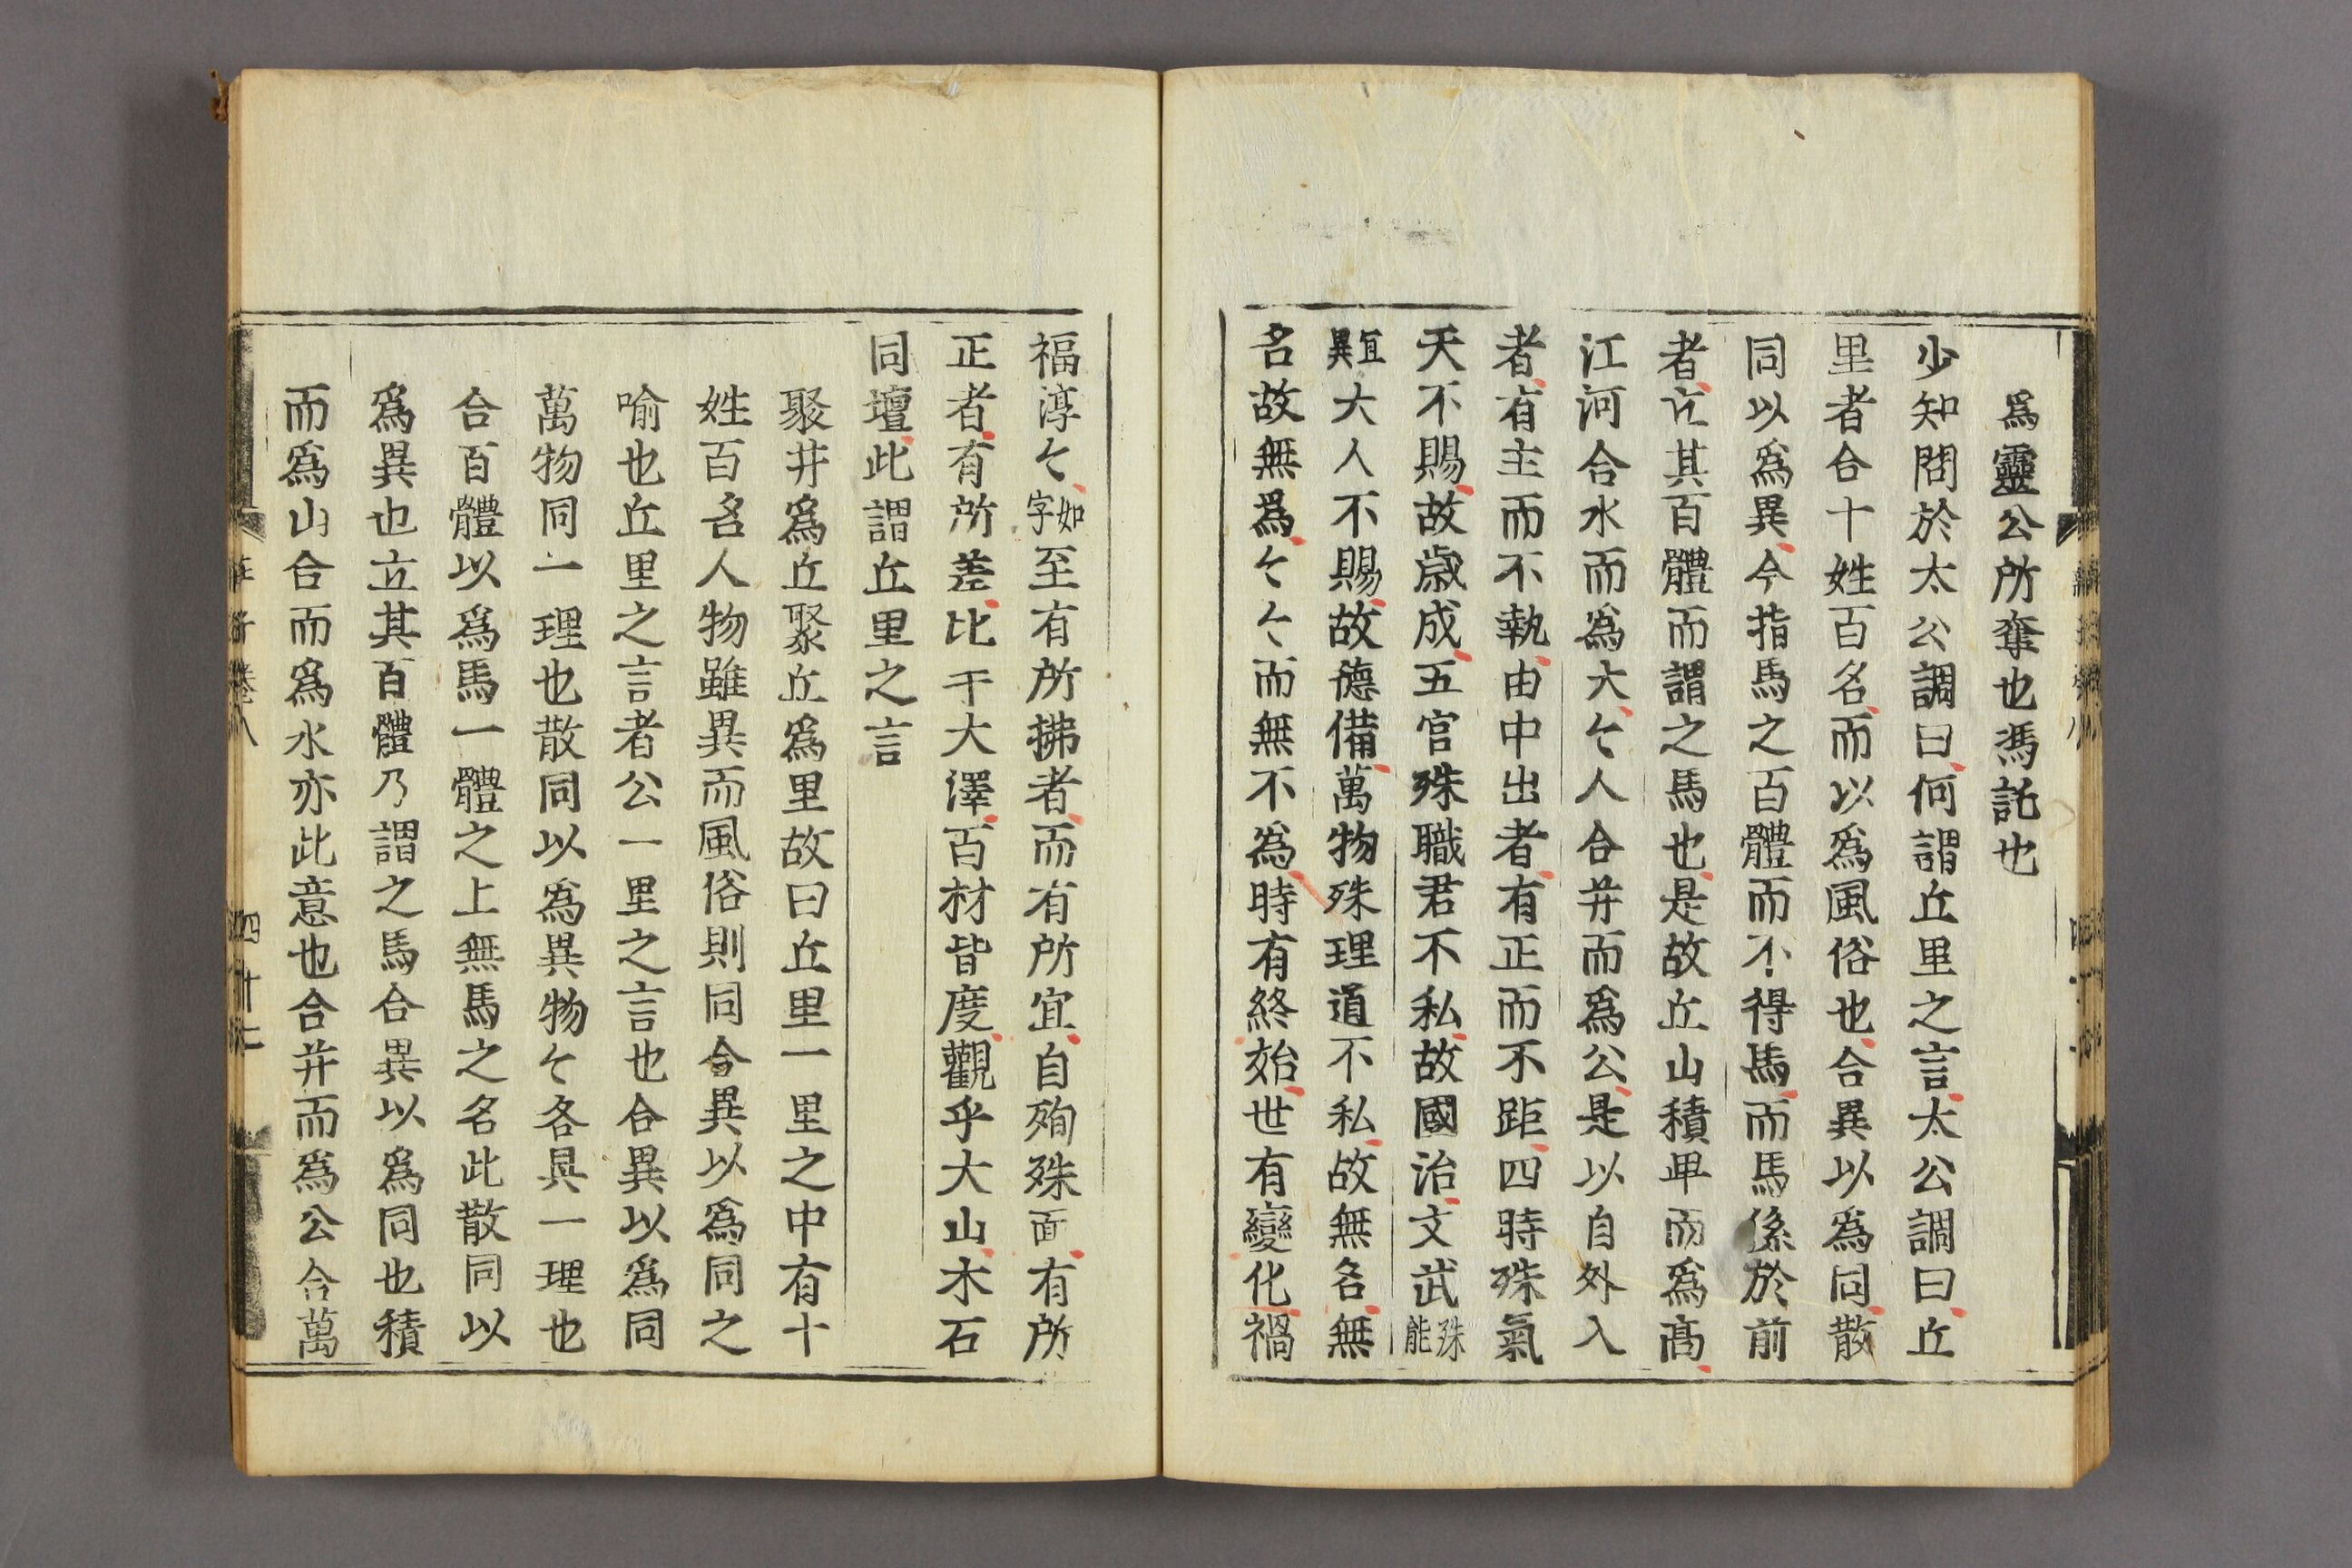 爲靈公所奪也馮託也
少知問於太公調曰何謂丘里之言太公調曰丘
里者合十姓百名而以爲風俗也合異以爲同散
同以爲異今指馬之百體而不得馬而馬係於前
者立其百體而謂之馬也是故丘山積卑而爲高
江河合水而爲大々人合并而爲公是以自外入
者有主而不執由中出者有正而不距四時殊氣
天不賜故歲成五官殊職君不私故國治文武殊能
大人不賜故德備萬物殊理道不私故無名無
宜異
名故無爲々々而無不爲時有終始世有變化禍
福淳々如字至有所拂者而有所宜自殉殊面有所
正者有所差比于大澤百材皆度觀乎大山木石
同壇此謂丘里之言
聚井爲丘聚丘爲里故曰丘里一里之中有十
姓百名人物雖異而風俗則同合異以爲同之
喻也丘里之言者公一里之言也合異以爲同
萬物同一理也散同以爲異物々各具一理也
合百體以爲馬一體之上無馬之名此散同以
爲異也立其百體乃謂之馬合異以爲同也積
而爲山合而爲水亦此意也合并而爲公合萬
莊子卷八
四十七